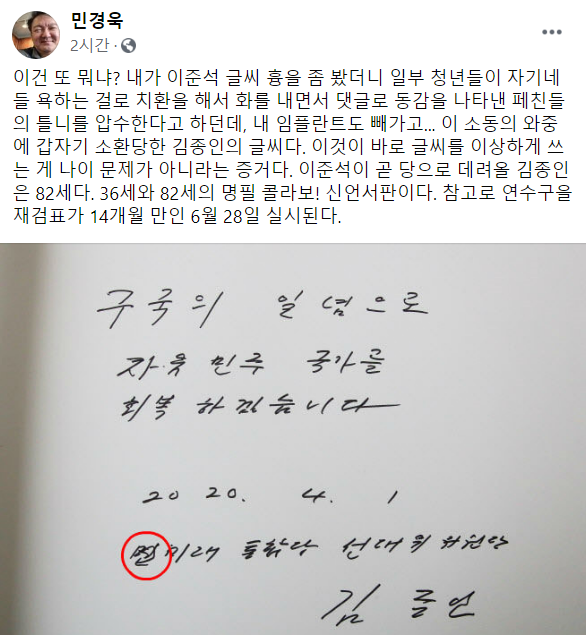 민경욱
2시간 ·
이건 또 뭐냐? 내가 이준석 글씨 흉을 좀 봤더니 일부 청년들이 자기네
들 욕하는 걸로 치환을 해서 화를 내면서 댓글로 동감을 나타낸 페친들
의 틀니를 압수한다고 하던데, 내 임플란트도 빼가고... 이 소동의 와중
에 갑자기 소환당한 김종인의 글씨다. 이것이 바로 글씨를 이상하게 쓰
는 게 나이 문제가 아니라는 증거다. 이준석이 곧 당으로 데려올 김종인
은 82세다. 36세와 82세의 명필 콜라보! 신언서판이다. 참고로 연수구을
재검표가 14개월 만인 6월 28일 실시된다.
구국의 일념으로
자유 민주 국가를
회복 하겠습니다
2020. 4. 1
미래 통합당 선대위 위원장
김 종인